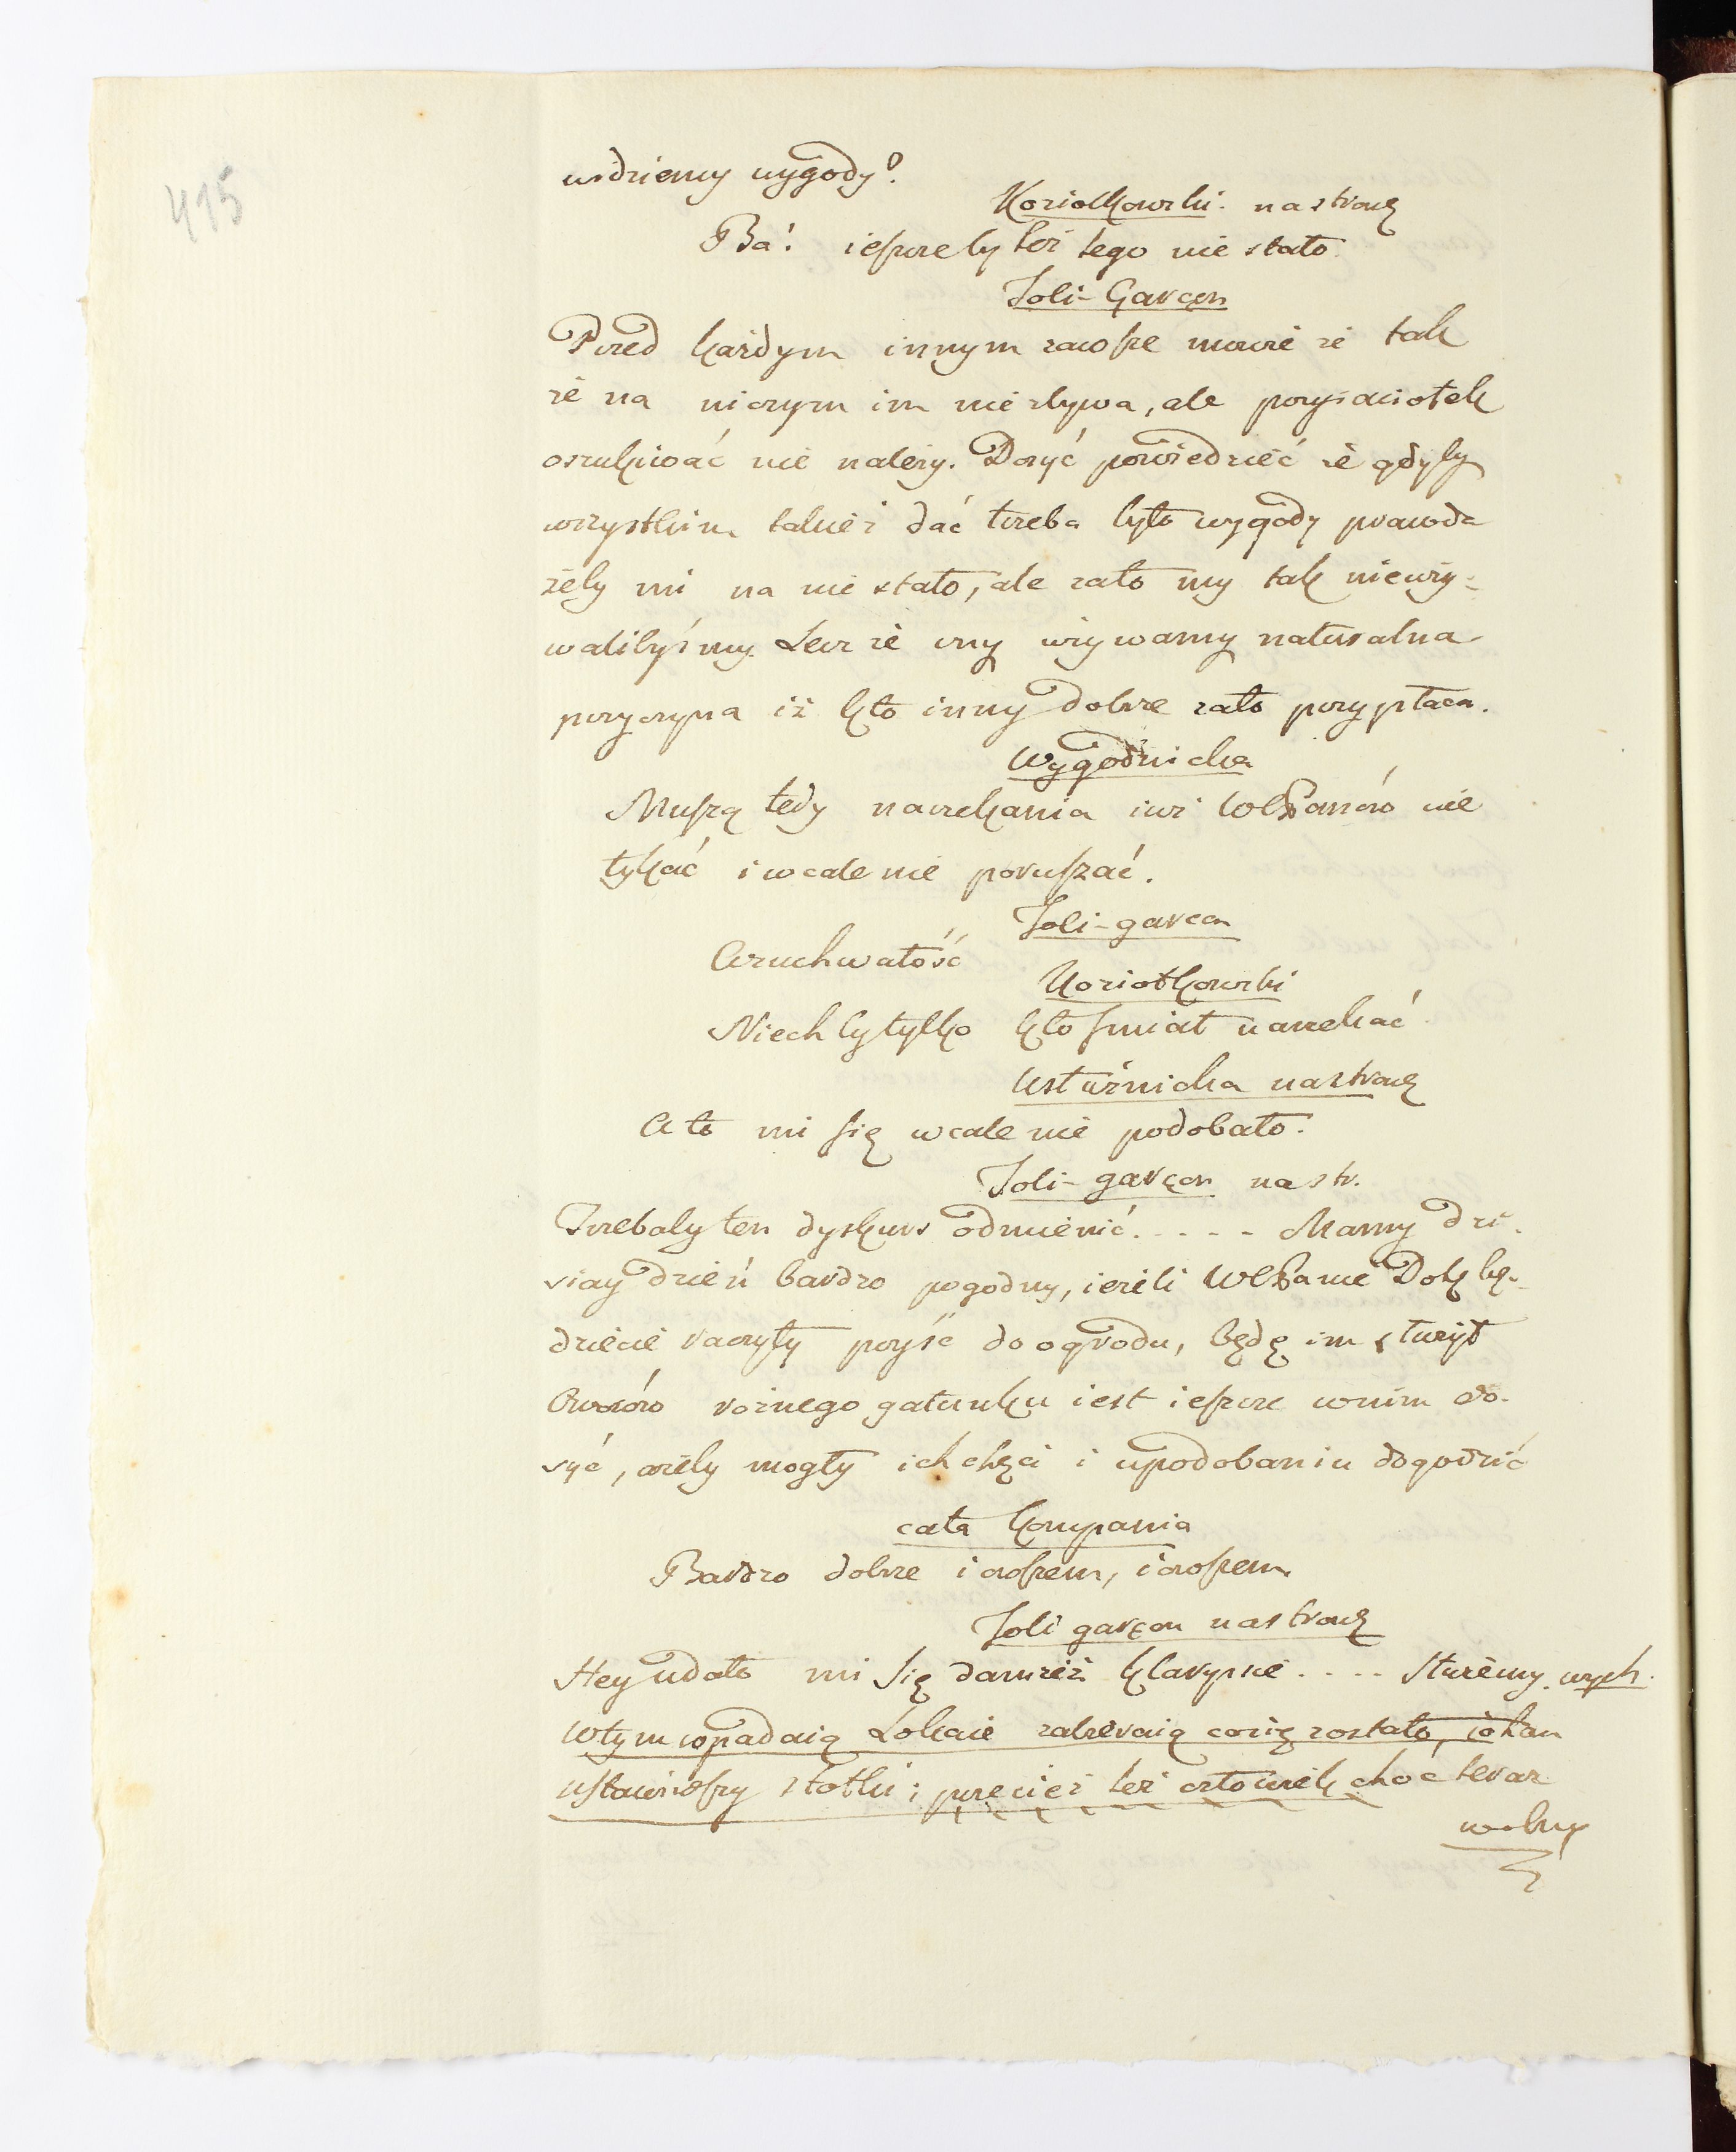 415
widziemy wygody?
Koziołkowski. na stronę
Ba! ieszczeby też tego nie stało.
Joli-Garçon
Przed każdym innym zawsze mowię że tak
że na niczym im nie zbywa, ale przyiaciołek
oszukiwać nie należy. Dosyć powiedzieć że gdyby
wszystkim takież dać trzeba było wygody prawda
żeby mi na nie stało, ale zato my tak nieuży-
walibyśmy. Lecz że my używamy naturalna
przyczyna iż kto inny dobrze zato przypłaca.
Wygodnicka
Muszą tedy narzekania iuż WPanów nie
tykać i wcale nie poruszać.
Joli-garcon
A zuchwałość
Koziołkowski
Niechby tylko kto smiał narzekać.
Usłużnicka na stronę
A to mi się wcale nie podobało.
Joli-garçon na str.
Trzebaby ten dyskurs odmienić. . . . . Mamy dzi-
siay dzień bardzo pogodny, ieżeli WPanie Dob: bę-
dziecie raczyły pоyść do ogrodu, będę im służył
Owoców rożnego gatunku iest ieszcze wnim do-
syć, ażeby mogły ich chęci i upodobaniu dogodzić
cała kompania
Bardzo dobrze i owszem, i owszem.
Joli garçon na stronę
Hey udało mi się . . . . Służemy. wych.
Wtym wpadaią Lokaie zabieraią co się zostało, ieden
ustawiwszy stołki; przecież też człowiek choć teraz
wolny